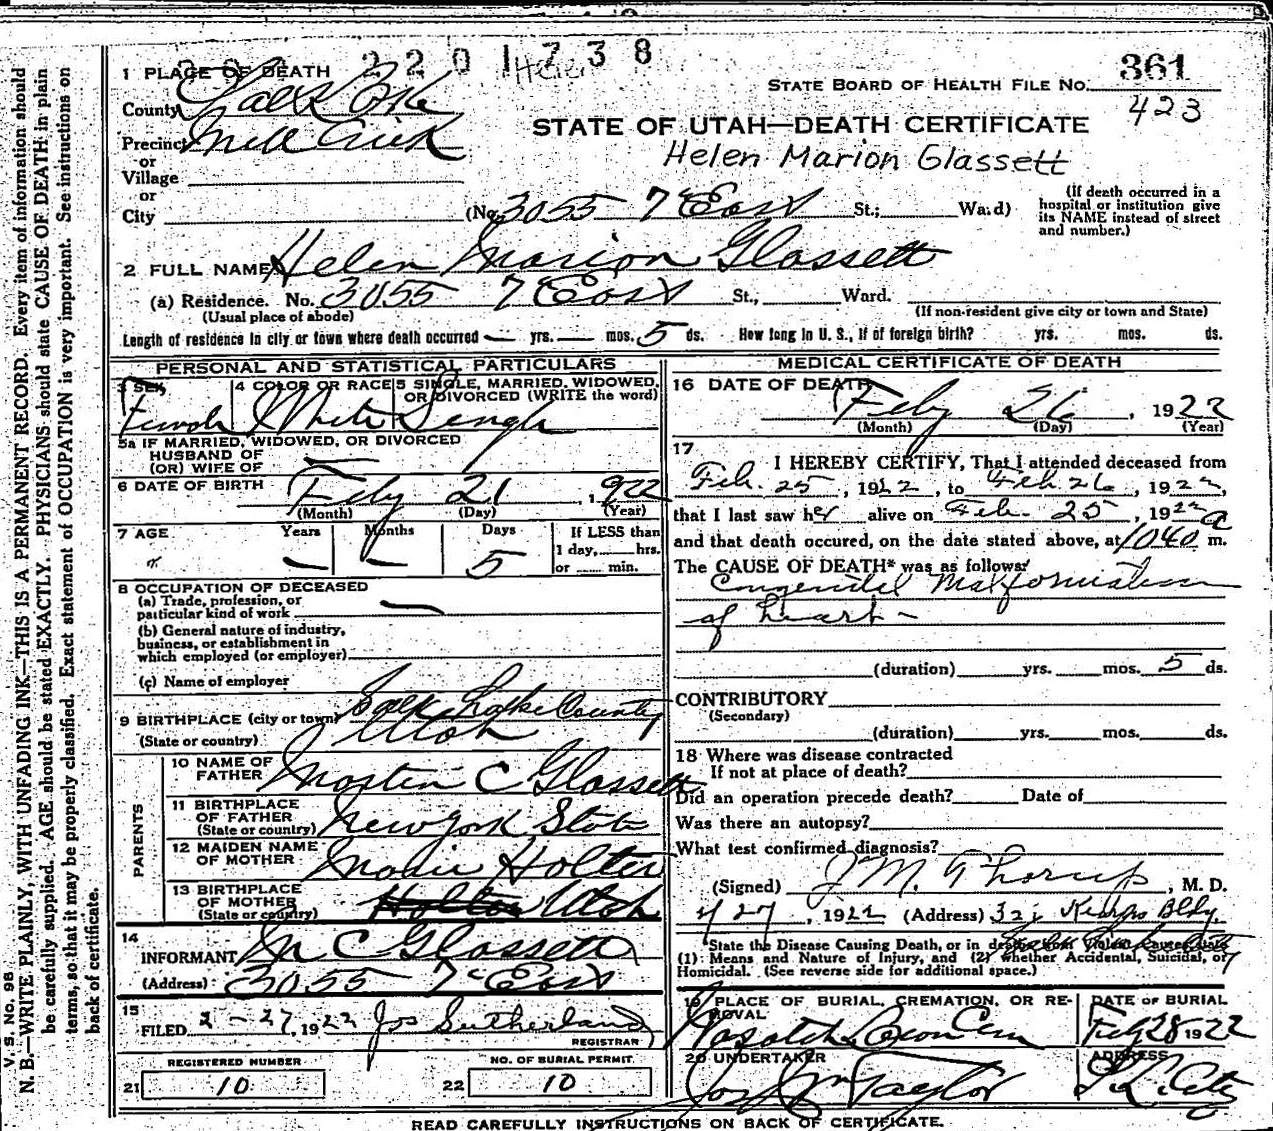 2 2 0 1 7 3 8
Helen
1 PLACE OF DEATH
County Salt Lake
Precinct Mill Creek
or
Village
or
City
(No. 3055 7 East St.; Ward)
STATE BOARD OF HEALTH FILE No. 361
423
STATE OF UTAH—DEATH CERTIFICATE
Helen Marion Glassett
(If death occurred in a
hospital or institution give
its NAME instead of street
and number.)
2 FULL NAME Helen Marion Glassett
(a) Residence. No. 3055 7 East St., Ward.
(Usual place of abode)
(If non-resident give city or town and State)
Length of residence in city or town where death occurred — yrs. — mos. 5 ds. How long in U. S., if of foreign birth? yrs. mos. ds.
PERSONAL AND STATISTICAL PARTICULARS
3 SEX 4 COLOR OR RACE 5 SINGLE, MARRIED, WIDOWED,
OR DIVORCED (WRITE the word)
Female White Single
5a IF MARRIED, WIDOWED, OR DIVORCED
HUSBAND OF
(OR) WIFE OF —
6 DATE OF BIRTH Feby 21, 1922
(Month) (Day) (Year)
7 AGE Years Months Days If LESS than
1 day, hrs.
or min.
— — 5
8 OCCUPATION OF DECEASED
(a) Trade, profession, or
particular kind of work —
(b) General nature of industry,
business, or establishment in
which employed (or employer)
(c) Name of employer
9 BIRTHPLACE (city or town) Salt Lake County
(State or country) Utah
PARENTS
10 NAME OF
FATHER Martin C Glassett
11 BIRTHPLACE
OF FATHER
(State or country) New York State
12 MAIDEN NAME
OF MOTHER Marie Holter
13 BIRTHPLACE
OF MOTHER
(State or country) Utah
14
INFORMANT M C Glassett
(Address) 3055 7 East
15
FILED 2-27, 1922 Jos Sutherland
REGISTRAR
REGISTERED NUMBER NO. OF BURIAL PERMIT
21 10 22 10
MEDICAL CERTIFICATE OF DEATH
16 DATE OF DEATH
Feby 26, 1922
(Month) (Day) (Year)
17
I HEREBY CERTIFY, That I attended deceased from
Feb. 25, 1922, to Feb 26, 1922,
that I last saw her alive on Feb. 25, 1922
and that death occured, on the date stated above, at 1040 a m.
The CAUSE OF DEATH* was as follows:
Congenital Malformation
of heart -
(duration) yrs. mos. 5 ds.
CONTRIBUTORY
(Secondary)
(duration) yrs. mos. ds.
18 Where was disease contracted
If not at place of death?
Did an operation precede death? Date of
Was there an autopsy?
What test confirmed diagnosis?
(Signed) J M. Thorup, M. D.
27, 1922 (Address) Kearns Bldg.
*State the Disease Causing Death, or in deaths from Violent Causes state
(1) Means and Nature of Injury, and (2) whether Accidental, Suicidal, or
Homicidal. (See reverse side for additional space.)
19 PLACE OF BURIAL, CREMATION, OR RE-
MOVAL
DATE OF BURIAL
Wasatch Lawn Cem Feby 28 1922
20 UNDERTAKER ADDRESS
Jos Wm Taylor S L City
READ CAREFULLY INSTRUCTIONS ON BACK OF CERTIFICATE.
V. S. No. 98
N. B.—WRITE PLAINLY, WITH UNFADING INK—THIS IS A PERMANENT RECORD. Every item of information should
be carefully supplied. AGE should be stated EXACTLY. PHYSICIANS should state CAUSE OF DEATH in plain
terms, so that it may be properly classified. Exact statement of OCCUPATION is very important. See instructions on
back of certificate.